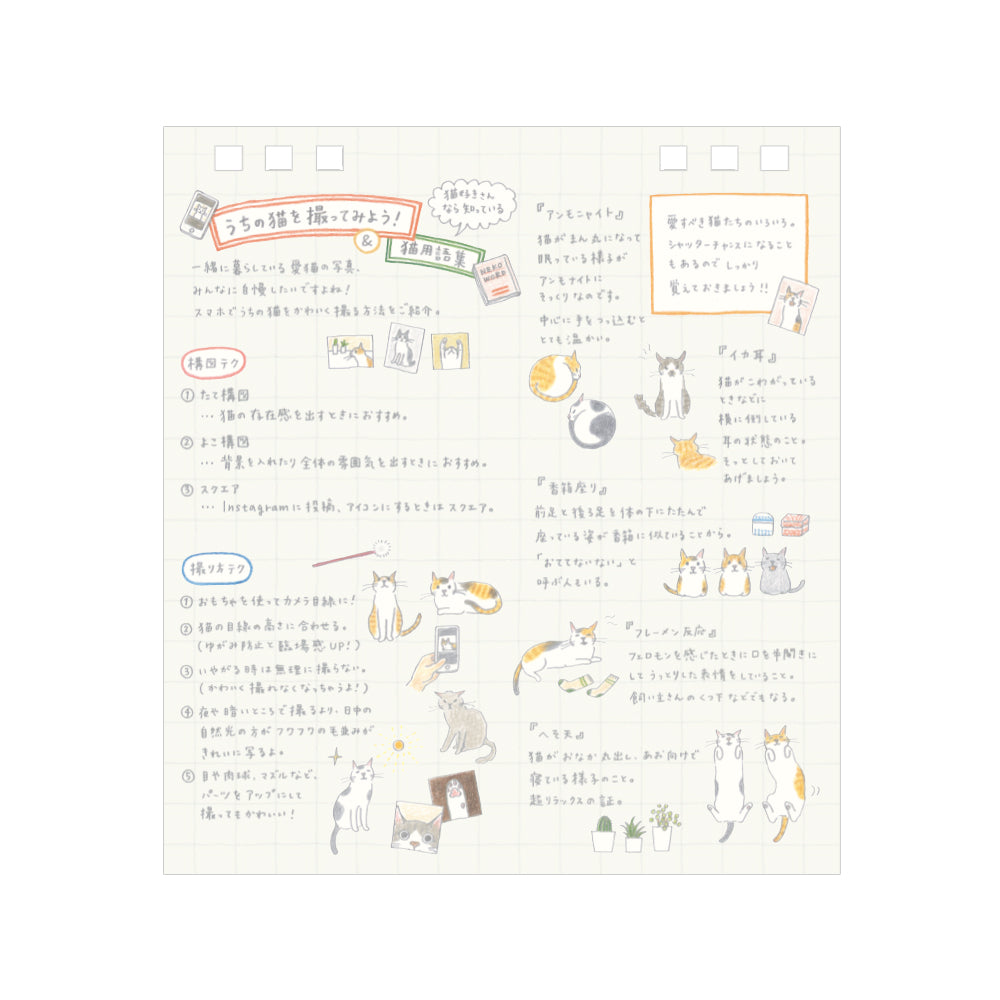 うちの猫を撮ってみよう！
&
猫用語集
猫好きさん
なら知っている
NEKO
WORD
一緒に暮らしている愛猫の写真、
みんなに自慢したいですよね！
スマホでうちの猫をかわいく撮る方法をご紹介。
構図テク
① たて構図
… 猫の存在感を出すときにおすすめ。
② よこ構図
… 背景を入れたり全体の雰囲気を出すときにおすすめ。
③ スクエア
… Instagramに投稿、アイコンにするときはスクエア。
撮り方テク
① おもちゃを使ってカメラ目線に！
② 猫の目線の高さに合わせる。
(ゆがみ防止と臨場感UP！)
③ いやがる時は無理に撮らない。
(かわいく撮れなくなっちゃうよ！)
④ 夜や暗いところで撮るより、日中の
自然光の方がフワフワの毛並みが
きれいに写るよ。
⑤ 目や肉球、マズルなど、
パーツをアップにして
撮ってもかわいい！
『アンモニャイト』
猫がまん丸になって
眠っている様子が
アンモナイトに
そっくりなのです。
中心に手をつっ込むと
とても温かい。
愛すべき猫たちのいろいろ。
シャッターチャンスになること
もあるので しっかり
覚えておきましょう！！
『イカ耳』
猫がこわがっている
ときなどに
横に倒している
耳の状態のこと。
そっとしておいて
あげましょう。
『香箱座り』
前足と後ろ足を体の下にたたんで
座っている姿が香箱に似ていることから。
「おててないない」と
呼ぶ人もいる。
『フレーメン反応』
フェロモンを感じたときに口を半開きに
してうっとりした表情をしていること。
飼い主さんのくつ下などでもなる。
『へそ天』
猫がおなか丸出し、あお向けで
寝ている様子のこと。
超リラックスの証。